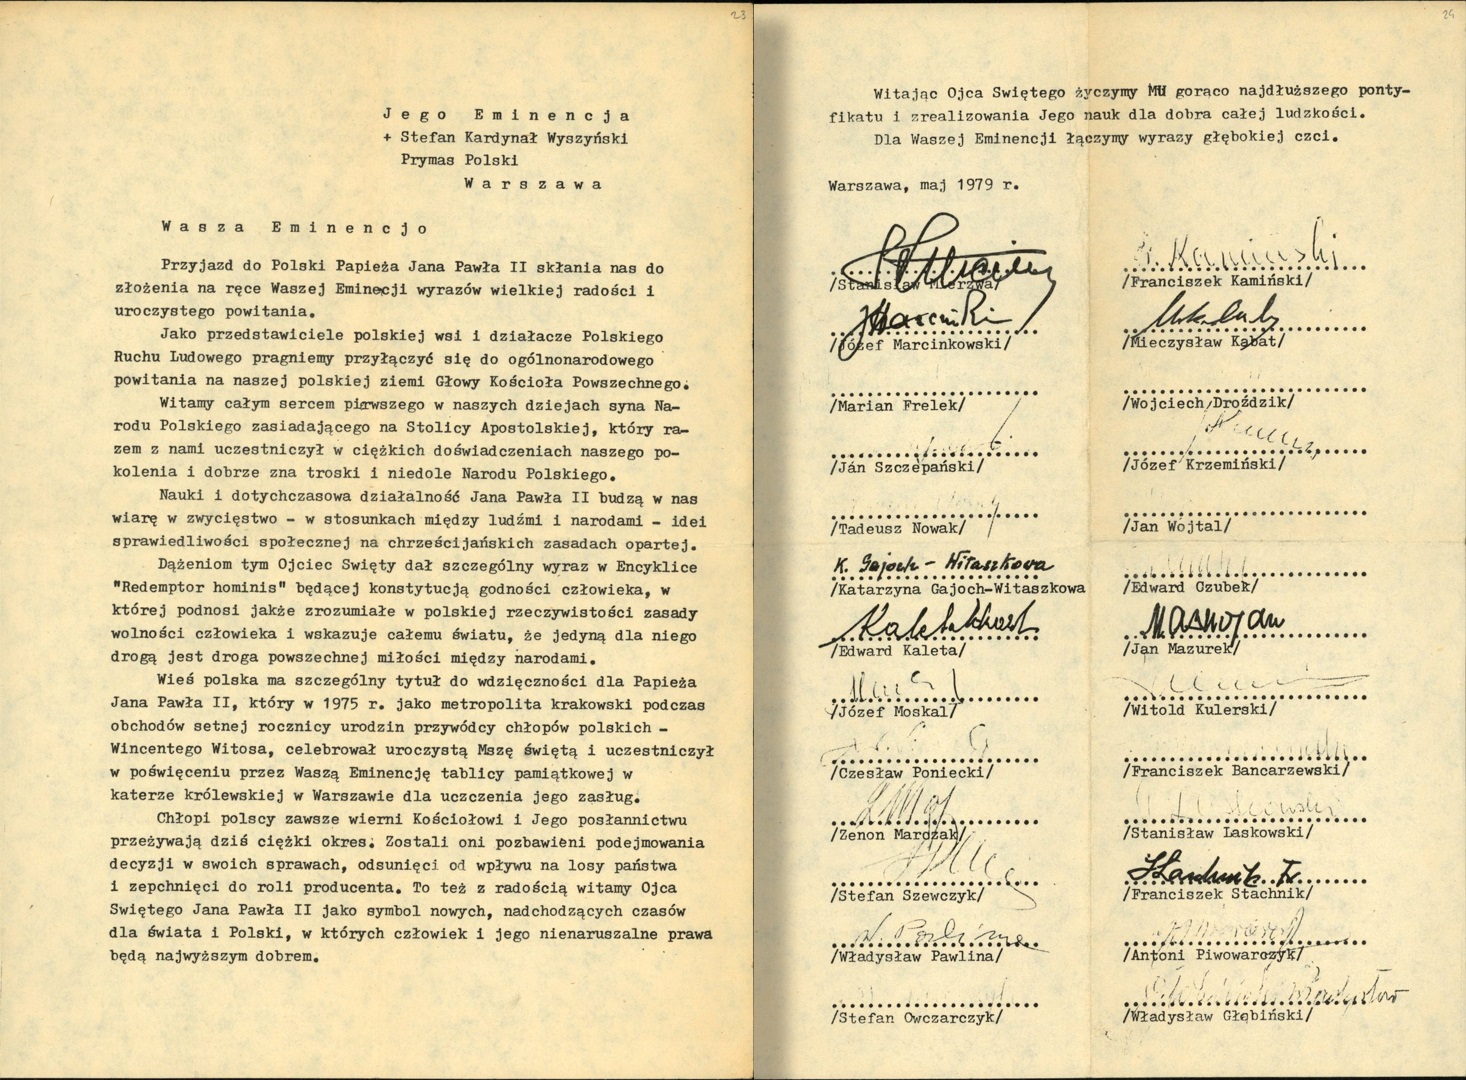 23
J e g o   E m i n e n c j a
+ Stefan Kardynał Wyszyński
Prymas Polski
W a r s z a w a
W a s z a   E m i n e n c j o
Przyjazd do Polski Papieża Jana Pawła II skłania nas do
złożenia na ręce Waszej Eminecji wyrazów wielkiej radości i
uroczystego powitania.
Jako przedstawiciele polskiej wsi i działacze Polskiego
Ruchu Ludowego pragniemy przyłączyć się do ogólnonarodowego
powitania na naszej polskiej ziemi Głowy Kościoła Powszechnego.
Witamy całym sercem pierwszego w naszych dziejach syna Na-
rodu Polskiego zasiadającego na Stolicy Apostolskiej, który ra-
zem z nami uczestniczył w ciężkich doświadczeniach naszego po-
kolenia i dobrze zna troski i niedole Narodu Polskiego.
Nauki i dotychczasowa działalność Jana Pawła II budzą w nas
wiarę w zwycięstwo - w stosunkach między ludźmi i narodami - idei
sprawiedliwości społecznej na chrześcijańskich zasadach opartej.
Dążeniom tym Ojciec Swięty dał szczególny wyraz w Encyklice
"Redemptor hominis" będącej konstytucją godności człowieka, w
której podnosi jakże zrozumiałe w polskiej rzeczywistości zasady
wolności człowieka i wskazuje całemu światu, że jedyną dla niego
drogą jest droga powszechnej miłości między narodami.
Wieś polska ma szczególny tytuł do wdzięczności dla Papieża
Jana Pawła II, który w 1975 r. jako metropolita krakowski podczas
obchodów setnej rocznicy urodzin przywódcy chłopów polskich -
Wincentego Witosa, celebrował uroczystą Mszę świętą i uczestniczył
w poświęceniu przez Waszą Eminencję tablicy pamiątkowej w
katerze królewskiej w Warszawie dla uczczenia jego zasług.
Chłopi polscy zawsze wierni Kościołowi i Jego posłannictwu
przeżywają dziś ciężki okres. Zostali oni pozbawieni podejmowania
decyzji w swoich sprawach, odsunięci od wpływu na losy państwa
i zepchnięci do roli producenta. To też z radością witamy Ojca
Swiętego Jana Pawła II jako symbol nowych, nadchodzących czasów
dla świata i Polski, w których człowiek i jego nienaruszalne prawa
będą najwyższym dobrem.
24
Witając Ojca Swiętego życzymy MU gorąco najdłuższego ponty-
fikatu i zrealizowania Jego nauk dla dobra całej ludzkości.
Dla Waszej Eminencji łączymy wyrazy głębokiej czci.
Warszawa, maj 1979 r.
/Stanisław Mierzwa/
J Marcinki
/Józef Marcinkowski/
/Marian Frelek/
/Jan Szczepański/
/Tadeusz Nowak/
K. Gajoch - Witaszkowa
/Katarzyna Gajoch-Witaszkowa
/Edward Kaleta/
/Józef Moskal/
/Czesław Poniecki/
/Zenon Marczak/
/Stefan Szewczyk/
W. Pawlina
/Władysław Pawlina/
/Stefan Owczarczyk/
F. Kamiński
/Franciszek Kamiński/
/Mieczysław Kabat/
/Wojciech Droździk/
/Józef Krzemiński/
/Jan Wojtal/
/Edward Czubek/
/Jan Mazurek/
/Witold Kulerski/
/Franciszek Bancarzewski/
/Stanisław Laskowski/
/Franciszek Stachnik/
/Antoni Piwowarczyk/
/Władysław Głębiński/